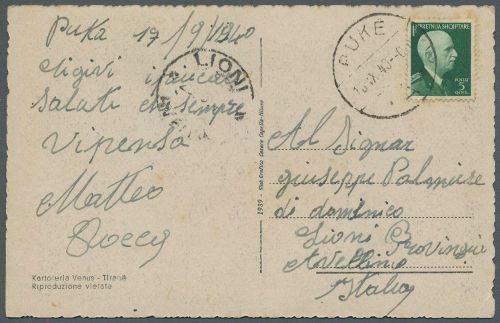 Puka 17/9/1940
Ricevi i nuovi
Saluti chi sempre
Vi pensa
Matteo
Rocco
Kartoleria Venus - Tiranë
Riproduzione vietata
LIONI
1939 - Stab. Grafico Cesare Capello - Milano
PUKE
MBRETNIJA SHQIPTARE
5
QIND.
Al Signor
giuseppe Palmise
di domenico
Lioni Provincia
Avellino
Italia